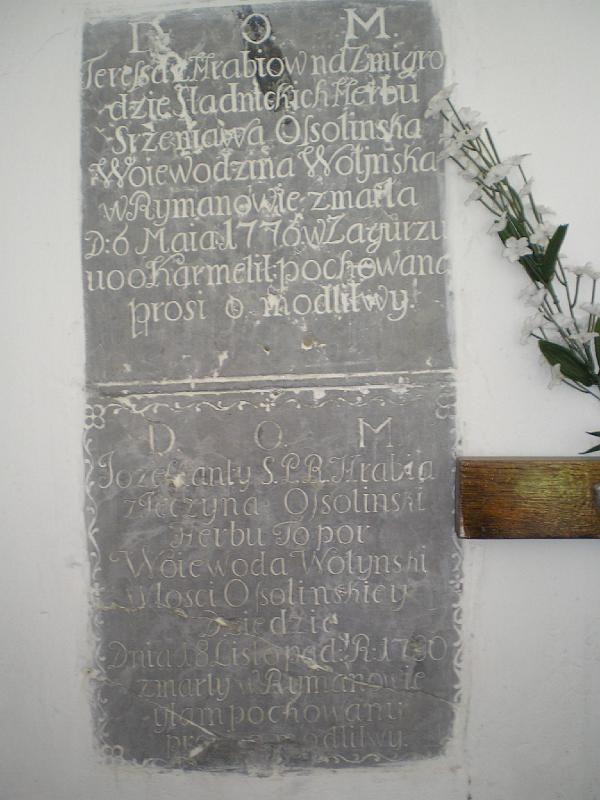 D. O. M.
Teressa z Hrabiow na Zmigro
dzie Stadnickich Herbu
Srzeniawa Ossolinska
Woiewodzina Wolynska
w Rymanowie zmarła
D: 6 Maia 1776. w Zagurzu
u oo Karmelit: pochowana
prosi o modlitwy.
D. O. M
Iozef S. P. R. Hrabia
z Tęczyna Ossolinski
Herbu Topor
Woiewoda Wołynski
Ossolinskiey
Dziedzic
Dnia 18 Listopad: R. 1780
zmarły w Rymanowie
y tam pochowany
modlitwy.